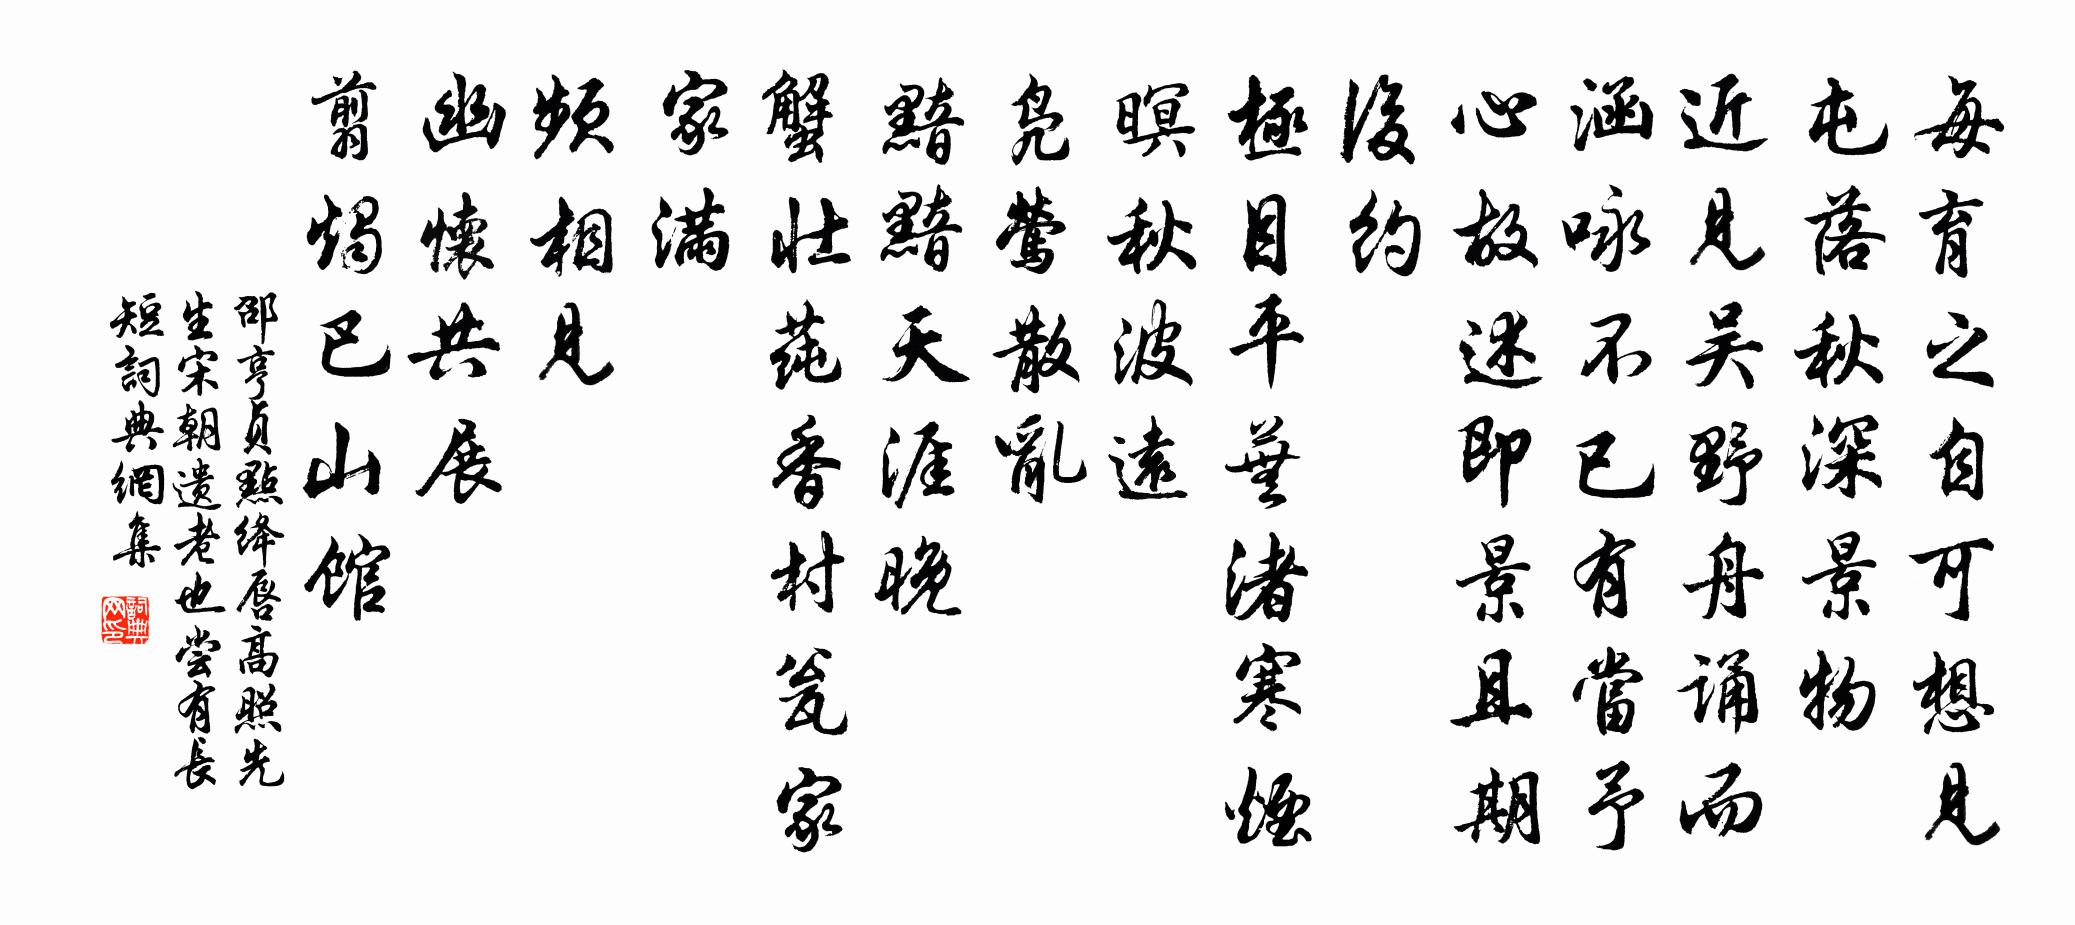 每育之自可想見
屯落秋深景物
近見吴野舟誦而
涵咏不已有當予
心故述即景且期
後約
極目平蕪渚寒煙
暝秋波遠
凫鶯散亂
黯黯天涯晚
蟹壯蒓香村瓮家
家满
頻相見
幽懷共展
翦燭巴山館
邵亨貞點绛唇高照先
生宋朝遺老也尝有長
短詞典網集
詞典网印